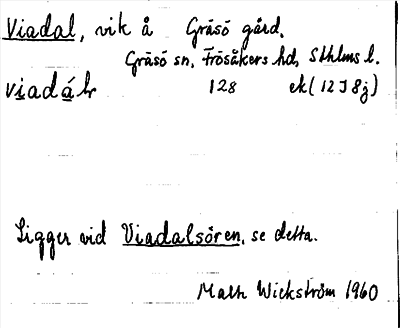 Viadal, vik å Gräsö gård.
Gräsö sn, Frösåkers hd, Sthlms l.
viadáɫr 128 ek (12 J 8j)
Ligger vid Viadalsören, se detta.
Math Wickström 1960